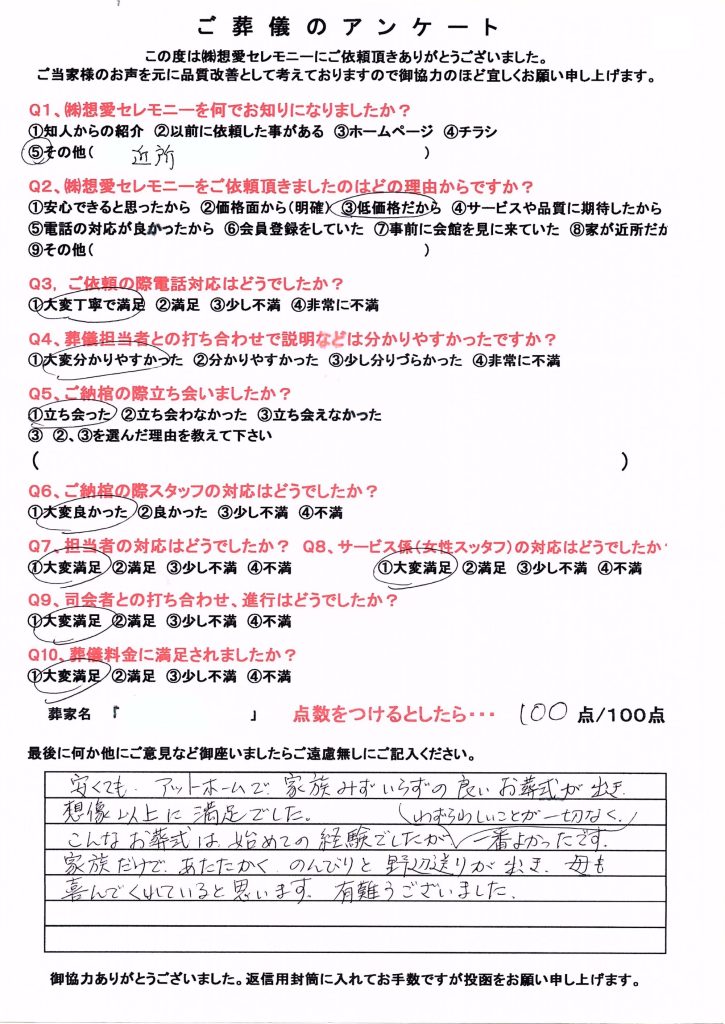 ご葬儀のアンケート
この度は㈱想愛セレモニーにご依頼頂きありがとうございました。
ご当家様のお声を元に品質改善として考えておりますので御協力のほど宜しくお願い申し上げます。
Q1、㈱想愛セレモニーを何でお知りになりましたか？
①知人からの紹介 ②以前に依頼した事がある ③ホームページ ④チラシ
⑤その他( 近所 )
Q2、㈱想愛セレモニーをご依頼頂きましたのはどの理由からですか？
①安心できると思ったから ②価格面から(明確) ③低価格だから ④サービスや品質に期待したから
⑤電話の対応が良かったから ⑥会員登録をしていた ⑦事前に会館を見に来ていた ⑧家が近所だか
⑨その他( )
Q3, ご依頼の際電話対応はどうでしたか？
①大変丁寧で満足 ②満足 ③少し不満 ④非常に不満
Q4、葬儀担当者との打ち合わせで説明などは分かりやすかったですか？
①大変分かりやすかった ②分かりやすかった ③少し分りづらかった ④非常に不満
Q5、ご納棺の際立ち会いましたか？
①立ち会った ②立ち会わなかった ③立ち会えなかった
③ ②、③を選んだ理由を教えて下さい
( )
Q6、ご納棺の際スタッフの対応はどうでしたか？
①大変良かった ②良かった ③少し不満 ④不満
Q7、担当者の対応はどうでしたか？ Q8、サービス係(女性スッタフ)の対応はどうでしたか
①大変満足 ②満足 ③少し不満 ④不満 ①大変満足 ②満足 ③少し不満 ④不満
Q9、司会者との打ち合わせ、進行はどうでしたか？
①大変満足 ②満足 ③少し不満 ④不満
Q10、葬儀料金に満足されましたか？
①大変満足 ②満足 ③少し不満 ④不満
葬家名 『 』 点数をつけるとしたら・・・ 100 点/100点
最後に何か他にご意見など御座いましたらご遠慮無しにご記入ください。
安くても、アットホームで、家族みずいらずの良いお葬式が出き、
想像以上に満足でした。 (わずらわしいことが一切なく、)
こんなお葬式は始めての経験でしたが、一番よかったです。
家族だけで、あたたかく、のんびりと野辺送りが出き、母も
喜んでくれていると思います。有難うございました。
御協力ありがとうございました。返信用封筒に入れてお手数ですが投函をお願い申し上げます。